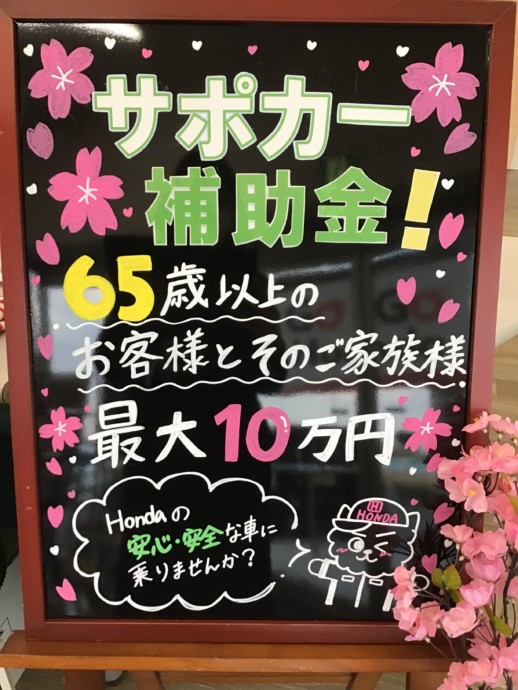 サポカー
補助金!
65歳以上の
お客様とそのご家族様
最大10万円
Hondaの
安心・安全な車に
乗りませんか?
H
HONDA